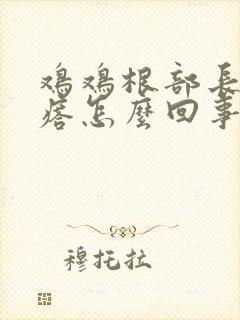 鸡鸡根部長
瘩怎麼回事
穆托拉